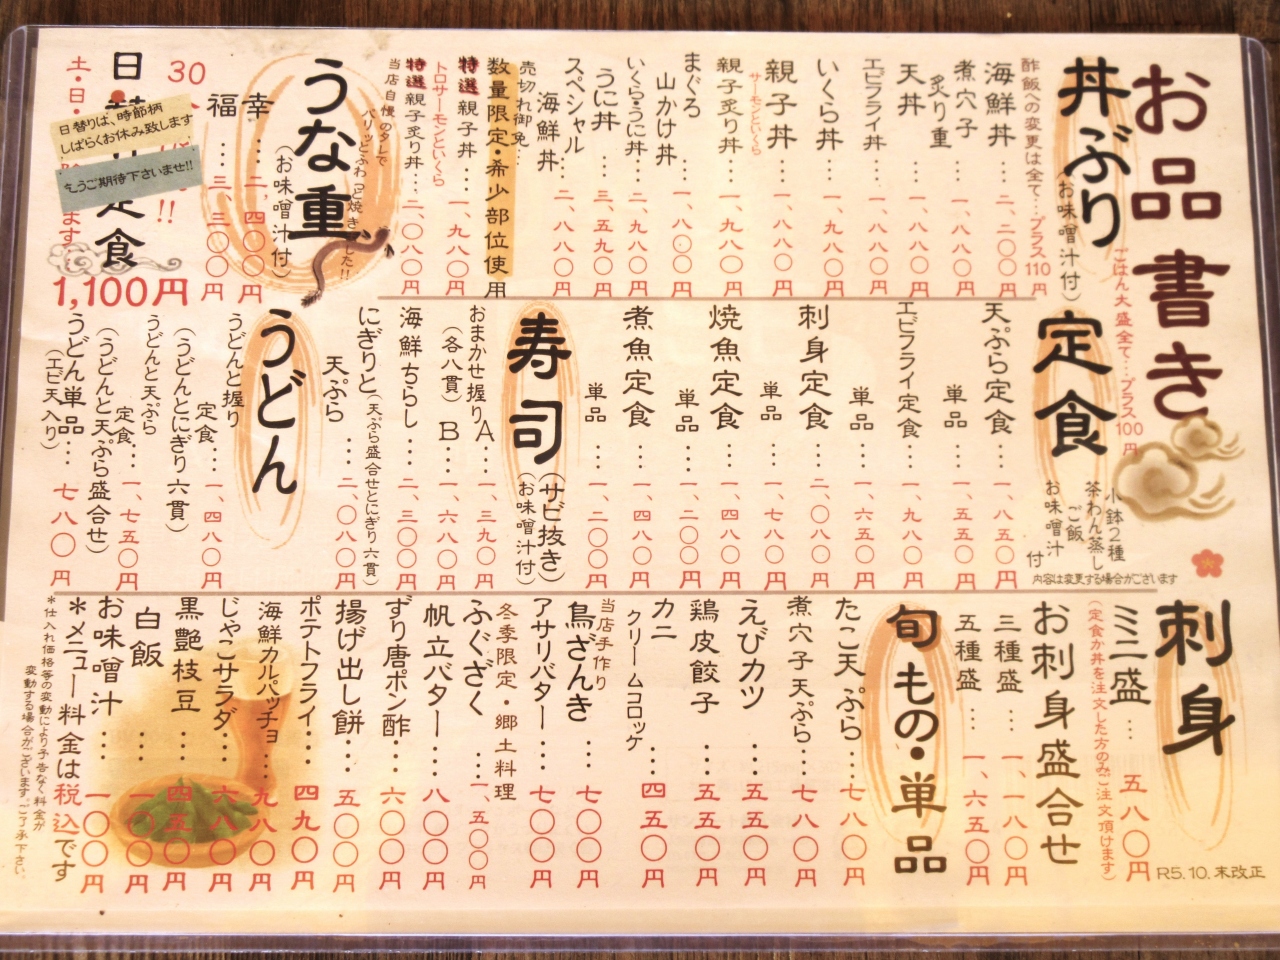 お品書き
丼ぶり
(お味噌汁付)
ごはん大盛全て…プラス100円
酢飯への変更は全て…プラス110円
海鮮丼…二、二〇〇円
煮穴子炙り重…一、九八〇円
天丼…一、一八〇円
エビフライ丼…一、一八〇円
いくら丼…一、九八〇円
親子丼…一、九八〇円
サーモンといくら
親子炙り丼…一、九八〇円
まぐろ山かけ丼…一、八〇〇円
いくら・うに丼…二、九八〇円
うに丼…三、五九〇円
スペシャル海鮮丼…二、八八〇円
売切れ御免…
数量限定・希少部位使用
特選親子丼…一、九八〇円
トロサーモンといくら
特選親子炙り丼…二、〇八〇円
当店自慢のタレで
うな重
(お味噌汁付)
幸…二、四〇〇円
福…三、三〇〇円
30
土・日・
日
定食
日替りは、時節柄
しばらくお休み致します
乞うご期待下さいませ!!
1,100円
定食
小鉢2種
茶わん蒸し
ご飯
お味噌汁付
内容は変更する場合がございます
天ぷら定食…一、八五〇円
単品…一、五五〇円
エビフライ定食…一、九八〇円
単品…一、六五〇円
刺身定食…二、〇八〇円
単品…一、七八〇円
焼魚定食…一、四八〇円
単品…一、二〇〇円
煮魚定食…一、四八〇円
単品…一、二〇〇円
寿司
(サビ抜き)
(お味噌汁付)
おまかせ握りA…一、三九〇円
(各八貫)B…一、六八〇円
海鮮ちらし…二、三〇〇円
にぎりと天ぷら…二、〇八〇円
(天ぷら盛合せとにぎり六貫)
うどん
うどんと握り定食…一、四八〇円
(うどんとにぎり六貫)
うどんと天ぷら定食…一、七五〇円
(うどんと天ぷら盛合せ)
うどん単品…七八〇円
(エビ天入り)
刺身
ミニ盛…五八〇円
(定食か丼を注文した方のみご注文頂けます)
お刺身盛合せ
三種盛…一、一八〇円
五種盛…一、六五〇円
旬もの・単品
たこ天ぷら…七八〇円
煮穴子天ぷら…七八〇円
えびカツ…五五〇円
鶏皮餃子…五五〇円
カニクリームコロッケ…四五〇円
当店手作り
鳥ざんき…七〇〇円
アサリバター…七〇〇円
冬季限定・郷土料理
ふぐざく…一、五〇〇円
帆立バター…八〇〇円
ずり唐ポン酢…六〇〇円
揚げ出し餅…五〇〇円
ポテトフライ…四九〇円
海鮮カルパッチョ…九八〇円
じゃこサラダ…六八〇円
黒艶枝豆…四五〇円
白飯…一八〇円
お味噌汁…一〇〇円
*メニュー料金は税込です
*仕入れ価格等の変動により予告なく料金が
変動する場合がございます。ご了承下さい。
R5.10.末改正